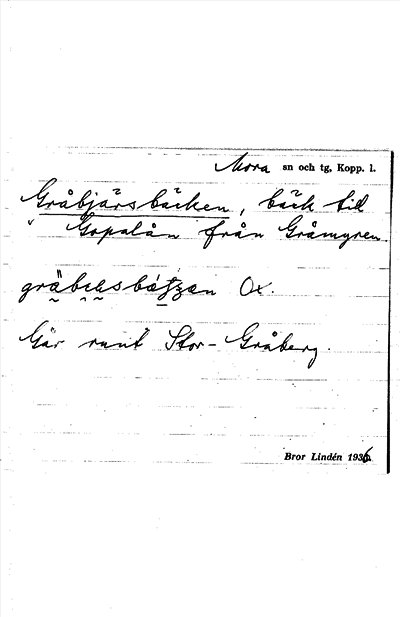 Mora sn och tg, Kopp. l.
Gråbjärsbäcken, bäck till
Gopalån från Gråmyren.
Ox.
Går runt Stor-Gråberg.
Bror Lindén 1936